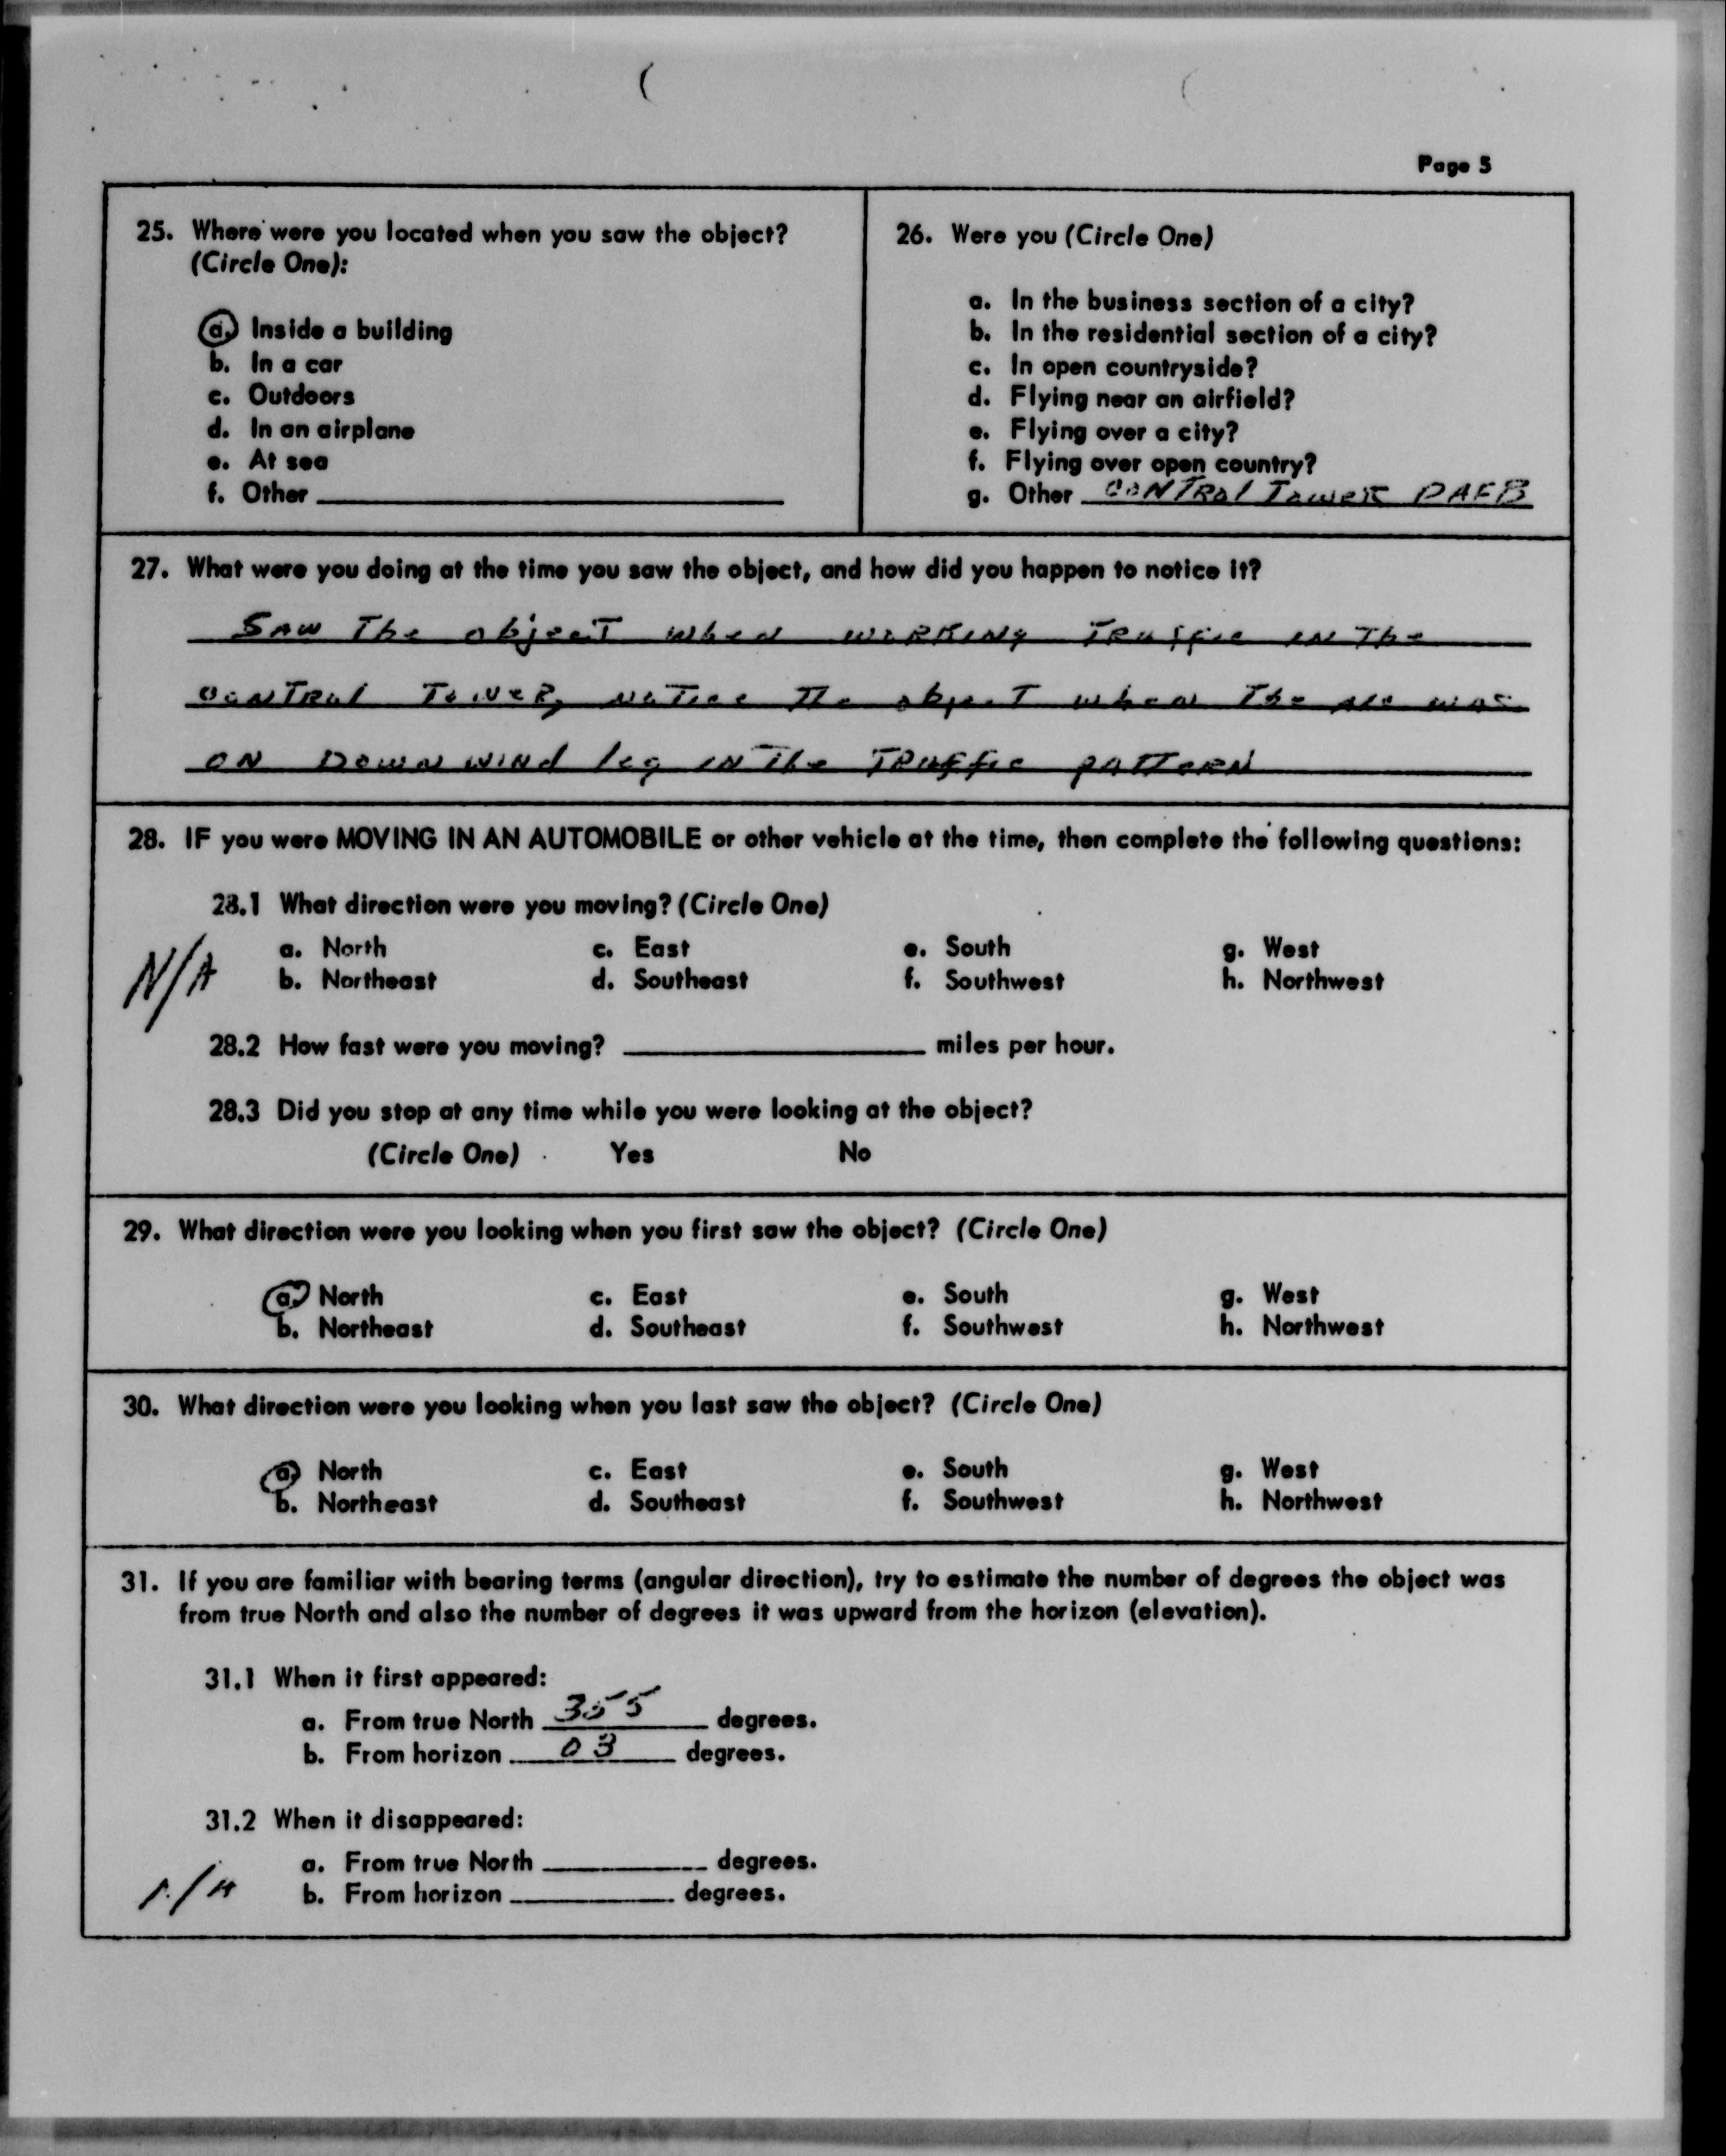 Page 5
25. Where were you located when you saw the object?
(Circle One):
a. Inside a building
b. In a car
c. Outdoors
d. In an airplane
e. At sea
f. Other
26. Were you (Circle One)
a. In the business section of a city?
b. In the residential section of a city?
c. In open countryside?
d. Flying near an airfield?
e. Flying over a city?
f. Flying over open country?
g. Other CONTROL TOWER DAFB
27. What were you doing at the time you saw the object, and how did you happen to notice it?
SAW The object when WORKING TRAffic IN The
CONTROL TOWER, NoTice The object when The was
ON DOWN WIND leg IN The TRAffic PATTERN
28. IF you were MOVING IN AN AUTOMOBILE or other vehicle at the time, then complete the following questions:
28.1 What direction were you moving? (Circle One)
a. North c. East e. South g. West
N/A b. Northeast d. Southeast f. Southwest h. Northwest
28.2 How fast were you moving? miles per hour.
28.3 Did you stop at any time while you were looking at the object?
(Circle One) Yes No
29. What direction were you looking when you first saw the object? (Circle One)
a. North c. East e. South g. West
b. Northeast d. Southeast f. Southwest h. Northwest
30. What direction were you looking when you last saw the object? (Circle One)
a. North c. East e. South g. West
b. Northeast d. Southeast f. Southwest h. Northwest
31. If you are familiar with bearing terms (angular direction), try to estimate the number of degrees the object was
from true North and also the number of degrees it was upward from the horizon (elevation).
31.1 When it first appeared:
a. From true North 355 degrees.
b. From horizon 03 degrees.
31.2 When it disappeared:
a. From true North degrees.
N/A b. From horizon degrees.